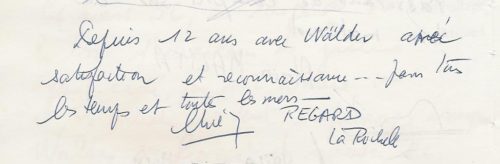 Depuis 12 ans avec Wälder avec
satisfaction et reconnaissance -- pour tous
les temps et toute les mers --
REGARD
La Rochelle